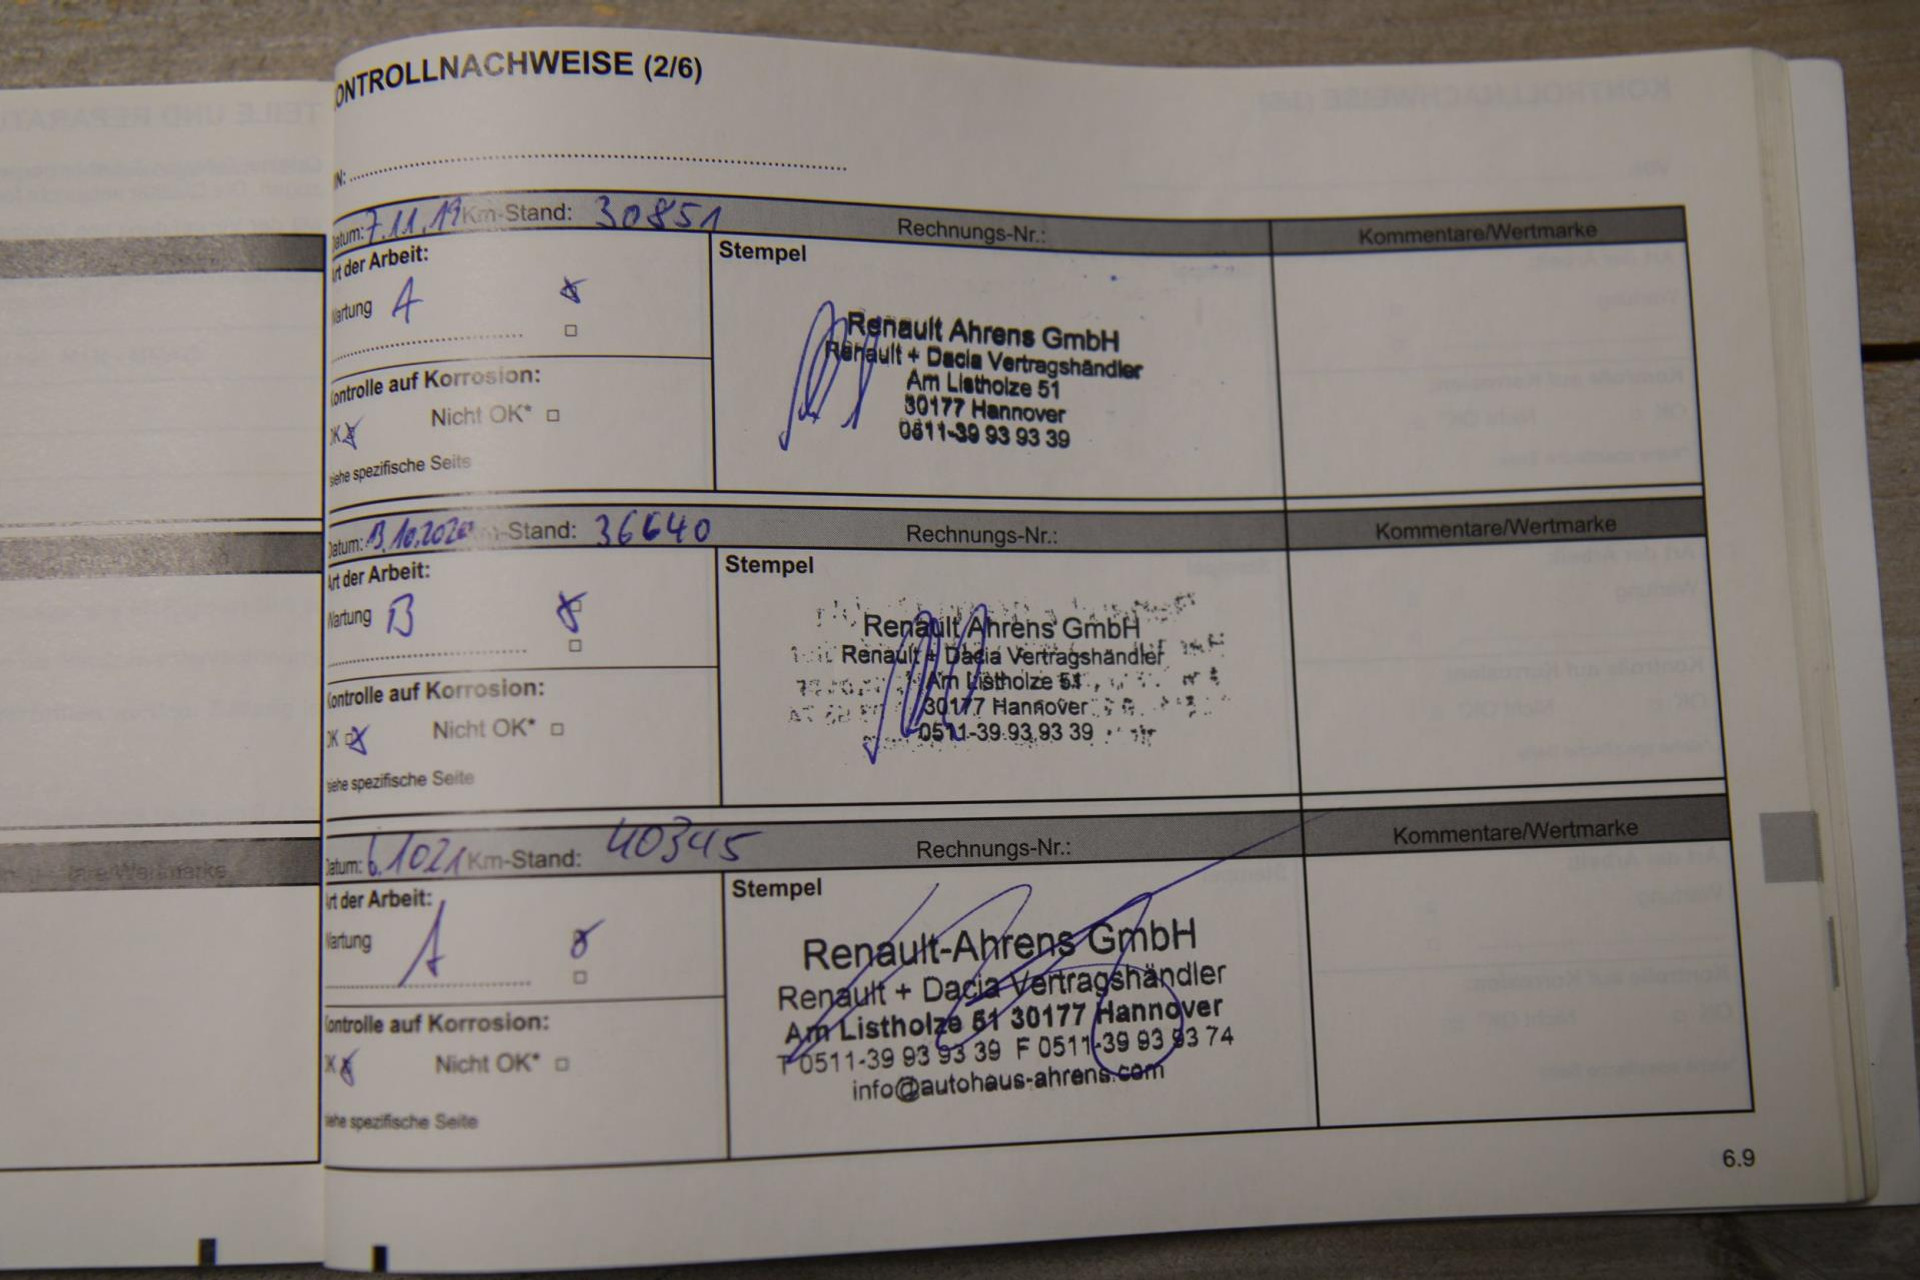 ONTROLLNACHWEISE (2/6)
IN:
atum: 7.11.19 Km-Stand: 30851 Rechnungs-Nr.: Kommentare/Wertmarke
Art der Arbeit:
Wartung A
Stempel
Renault Ahrens GmbH
Renault + Dacia Vertragshändler
Am Listholze 51
30177 Hannover
0511-39 93 93 39
ontrolle auf Korrosion:
OK Nicht OK*
siehe spezifische Seite
Datum: 13.10.2020 m-Stand: 36640 Rechnungs-Nr.: Kommentare/Wertmarke
Art der Arbeit:
Wartung B
Stempel
Renault Ahrens GmbH
Renault + Dacia Vertragshändler
Am Listholze 51
30177 Hannover
0511-39 93 93 39
Kontrolle auf Korrosion:
OK Nicht OK*
siehe spezifische Seite
Datum: 6.1021 Km-Stand: 40345 Rechnungs-Nr.: Kommentare/Wertmarke
Art der Arbeit:
Wartung A
Stempel
Renault-Ahrens GmbH
Renault + Dacia Vertragshändler
Am Listholze 51 30177 Hannover
T 0511-39 93 93 39 F 0511-39 93 93 74
info@autohaus-ahrens.com
Kontrolle auf Korrosion:
K Nicht OK*
iehe spezifische Seite
6.9